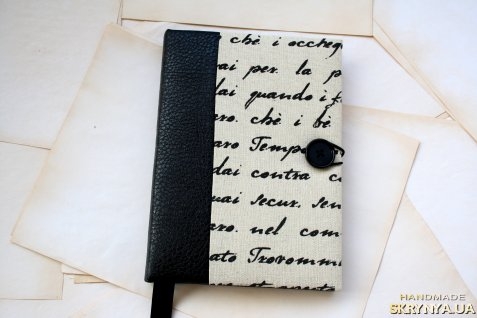 chè i occheg
dai per. la p
dai quando i f
aro. chè i bè
aro Tempo
dai contra c
uai secur. sen
ro. nel com
ato Trovomm
HANDMADE
SKRYNYA.UA